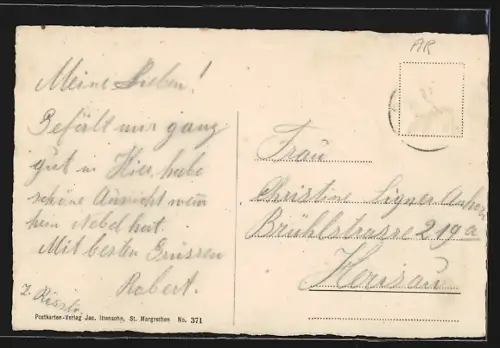 AR
Meine Lieben!
Gefält mir ganz
gut u. Hier habe
schöne Aussicht wenn
kein Nebel hat.
Mit besten Grüssen
Robert.
Postkarten-Verlag Jac. Ittensohn, St. Margrethen No. 371
Frau
Christine Signer
Brühlstrasse 219a
Herisau